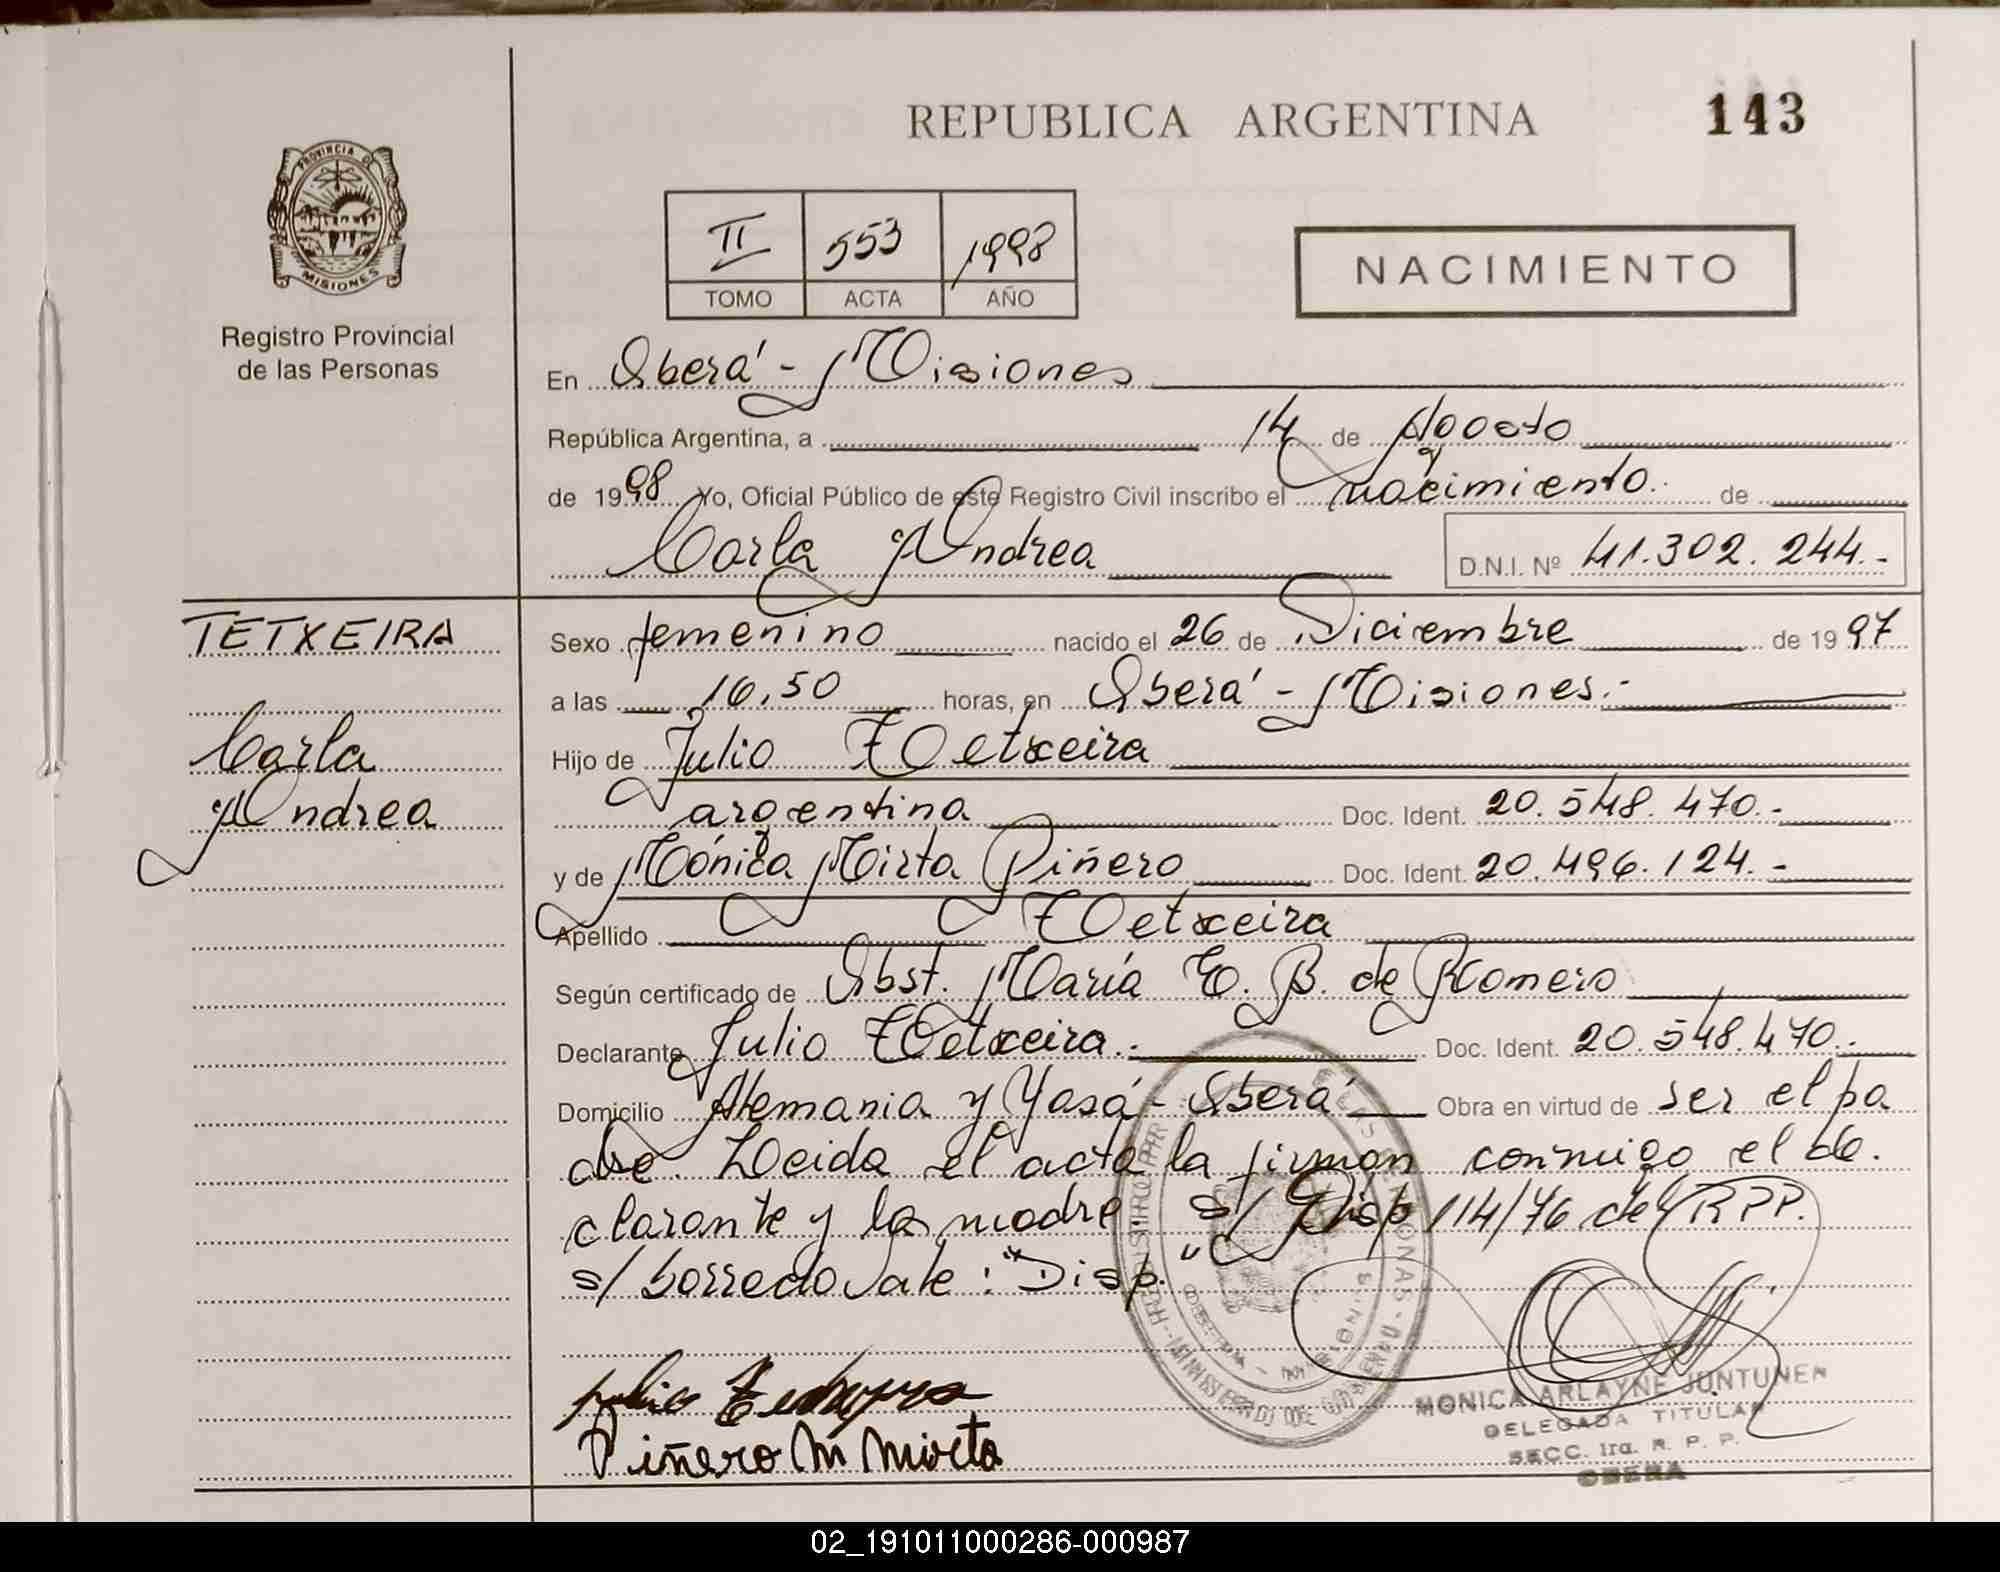 REPUBLICA ARGENTINA
143
PROVINCIA DE
MISIONES
Registro Provincial
de las Personas
II 553 1998
TOMO ACTA AÑO
NACIMIENTO
En Oberá - Misiones
República Argentina, a 14 de Agosto
de 1998 Yo, Oficial Público de este Registro Civil inscribo el nacimiento de
Carla Andrea
D.N.I. Nº 41.302.244.-
TETXEIRA
Carla
Andrea
Sexo femenino nacido el 26 de Diciembre de 1997
a las 16,50 horas, en Oberá - Misiones.-
Hijo de Julio Tetxeira
argentina Doc. Ident. 20.548.470.-
y de Mónica Mirta Piñero Doc. Ident. 20.496.124.-
Apellido Tetxeira
Según certificado de Obst. María E. B. de Romero
Declarante Julio Tetxeira.- Doc. Ident. 20.548.470.-
Domicilio Alemania y Yasá - Oberá Obra en virtud de ser el pa
dre. Leida el acta la firman conmigo el de
clarante y la madre s/ Disp 114/76 del RPP.
s/ borrado Vale: "Disp."
Julio
Piñero M Mirta
MONICA ARLAYNE JUNTUNEN
DELEGADA TITULAR
SECC. 1ra. R. P. P.
OBERA
02_191011000286-000987